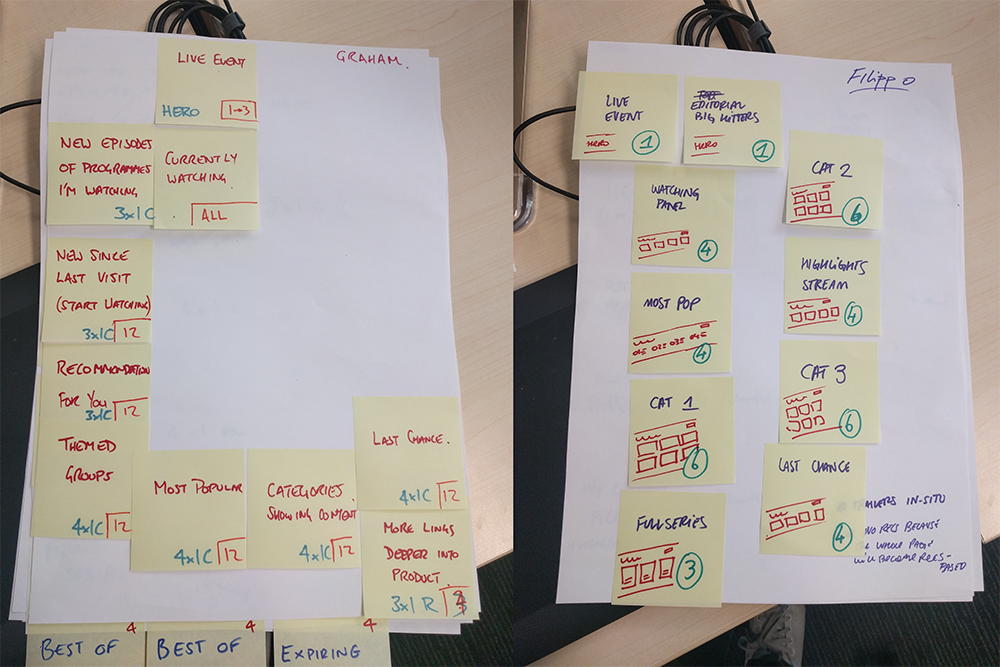 GRAHAM.
LIVE EVENT
HERO
1→3
NEW EPISODES
OF PROGRAMMES
I'M WATCHING
3x1C
CURRENTLY
WATCHING.
ALL
NEW SINCE
LAST VISIT
(START WATCHING)
3x1C 12
RECOMMONDATION
FOR YOU
3x1C 12
THEMED
GROUPS
4x1C 12
MOST POPULAR
4x1C 12
CATEGORIES.
SHOWING CONTENT
4x1C 12
LAST CHANCE.
4x1C 12
MORE LINGS
DEEPER INTO
PRODUCT.
3x1R
4
BEST OF
4
BEST OF
4
EXPIRING
FILIPPO
LIVE
EVENT
HERO
1
EDITORIAL
BIG HITTERS
HERO
1
WATCHING
PANEL
4
MOST POP
4
CAT 1
6
FULL SERIES
3
CAT 2
6
HIGHLIGHTS
STREAM
4
CAT 3
6
LAST CHANCE
4
IN-SITU
NO RECS BECAUSE
WHOLE PAGE
WILL BECOME RECS-
BASED